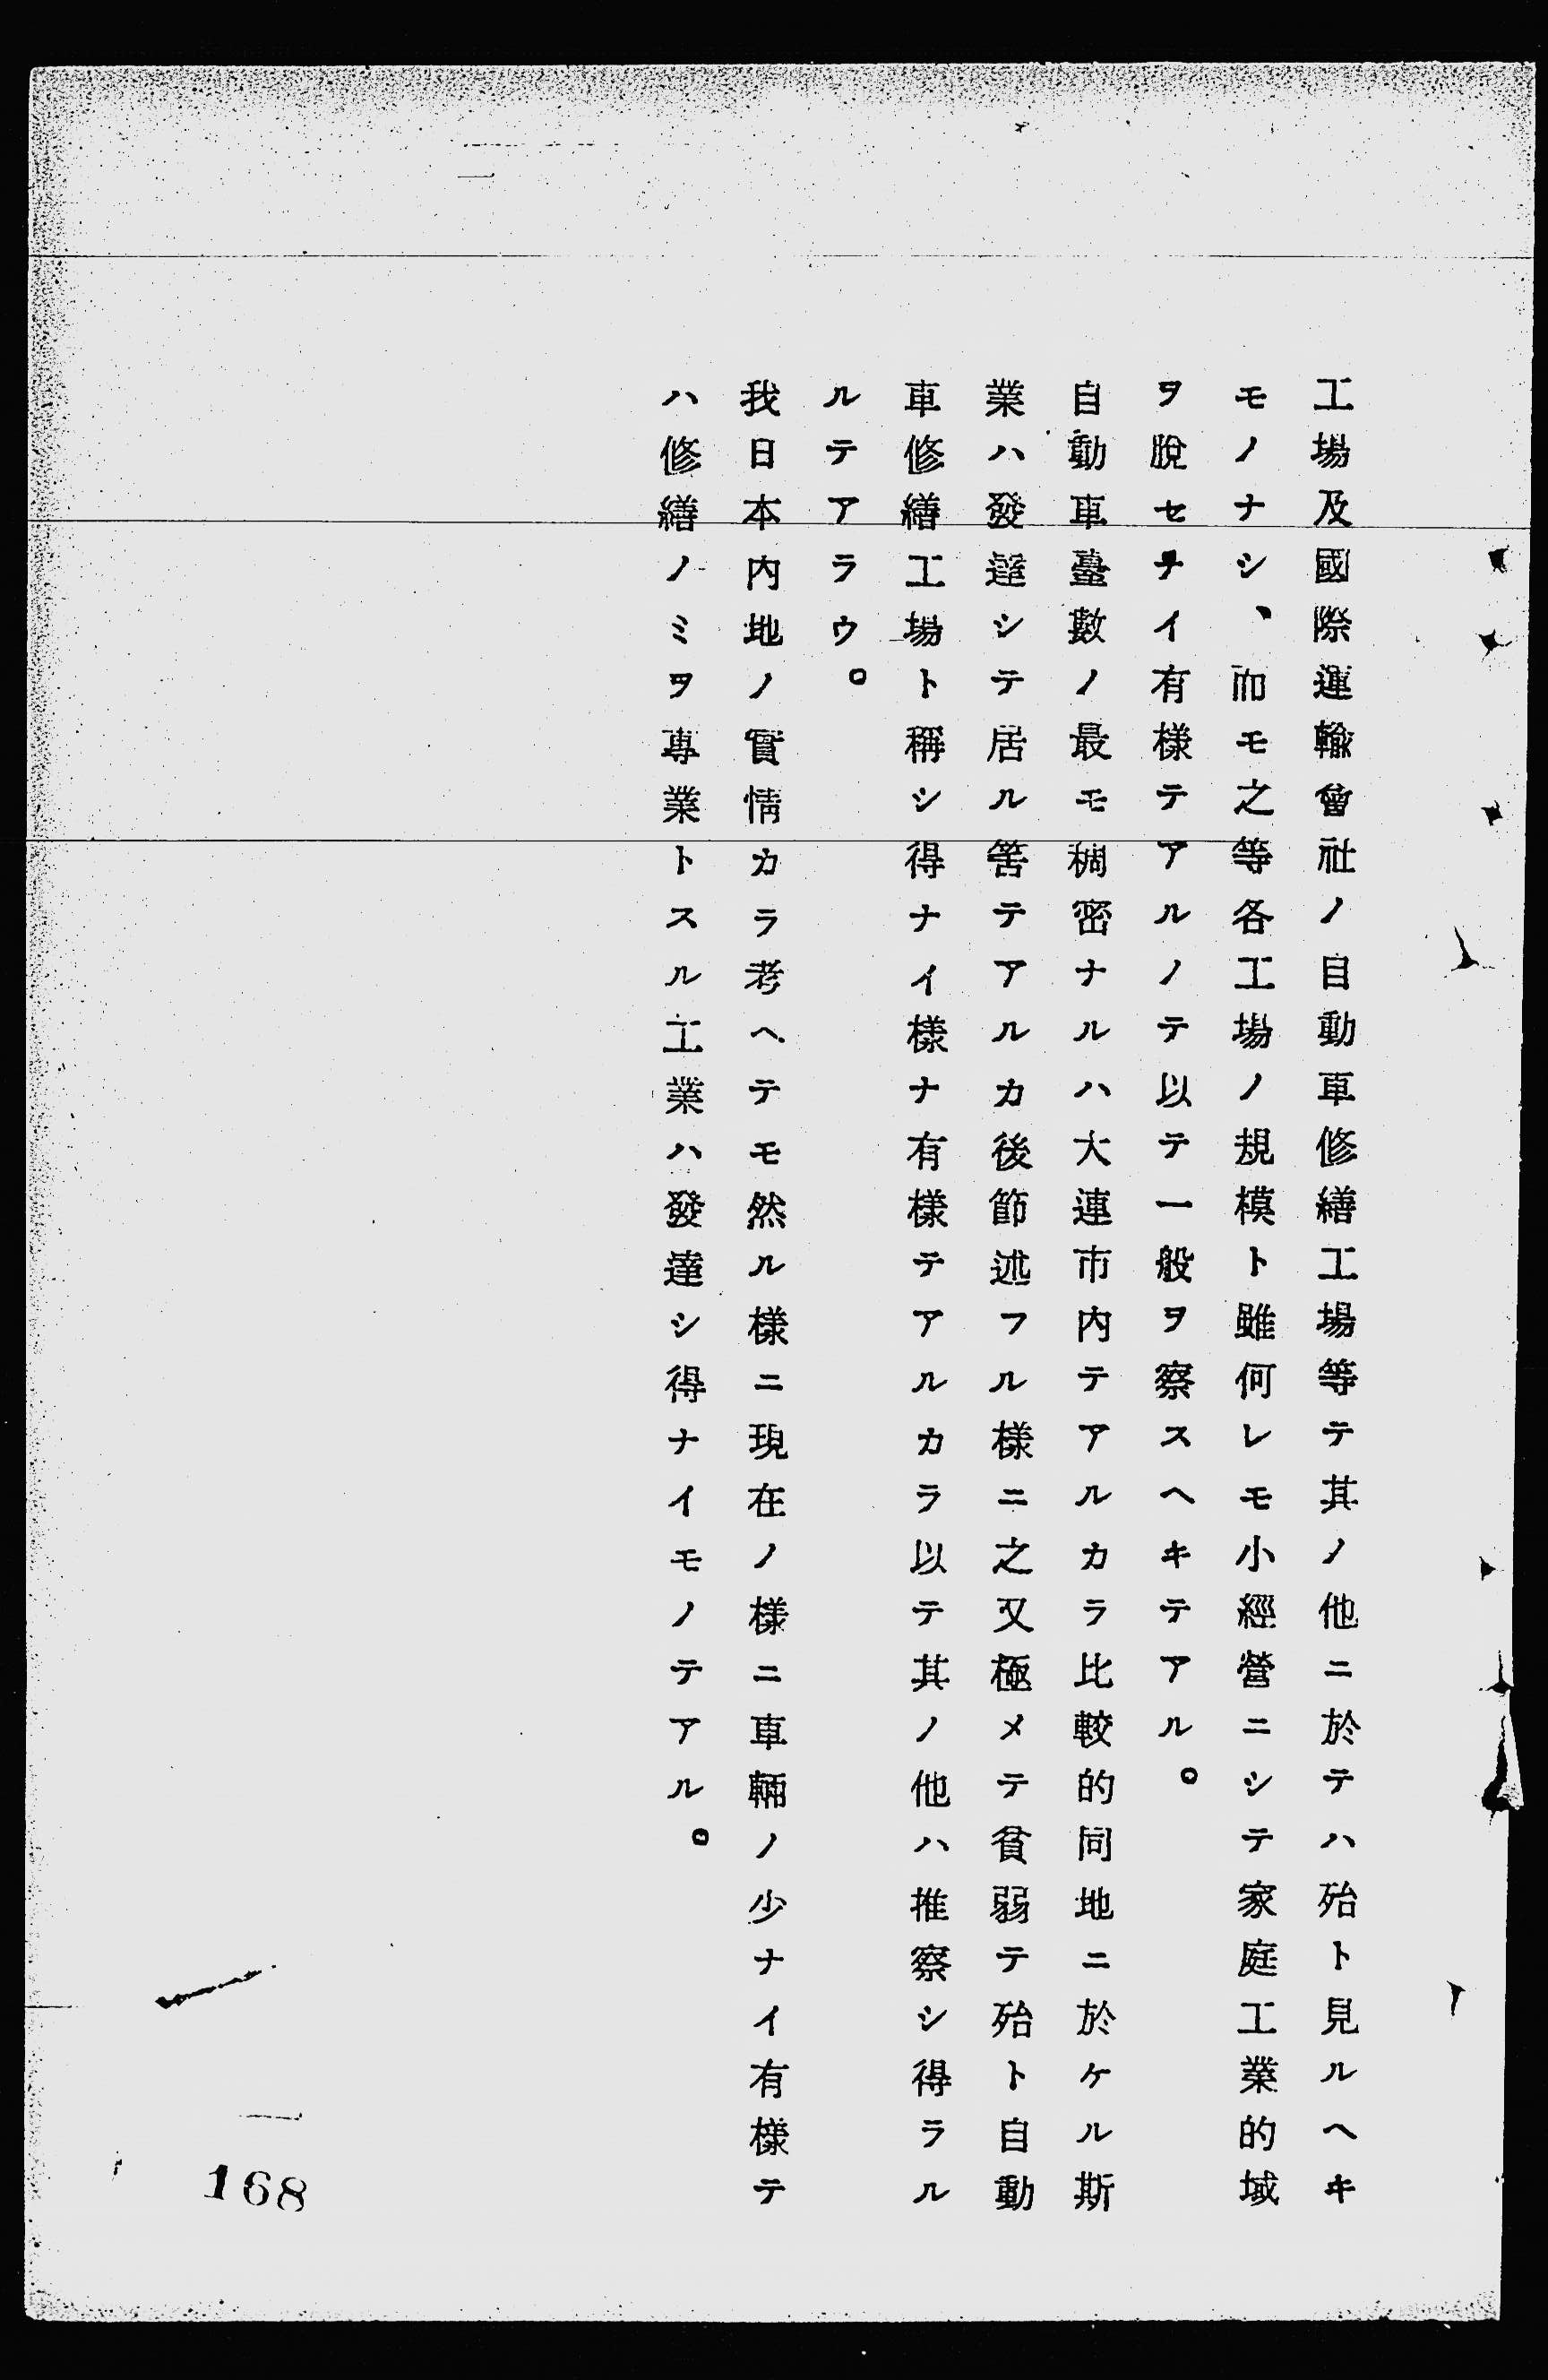 工場及國際運輸會社ノ自動車修繕工場等テ其ノ他ニ於テハ殆ト見ルヘキ
モノナシ、而モ之等各工場ノ規模ト雖何レモ小經營ニシテ家庭工業的域
ヲ脫セナイ有樣テアルノテ以テ一般ヲ察スヘキテアル。
自動車臺數ノ最モ稠密ナルハ大連市內テアルカラ比較的同地ニ於ケル斯
業ハ發達シテ居ル筈テアルカ後節述フル樣ニ之又極メテ貧弱テ殆ト自動
車修繕工場ト稱シ得ナイ樣ナ有樣テアルカラ以テ其ノ他ハ推察シ得ラル
ルテアラウ。
我日本內地ノ實情カラ考ヘテモ然ル樣ニ現在ノ樣ニ車輛ノ少ナイ有樣テ
ハ修繕ノミヲ專業トスル工業ハ發達シ得ナイモノテアル。
168